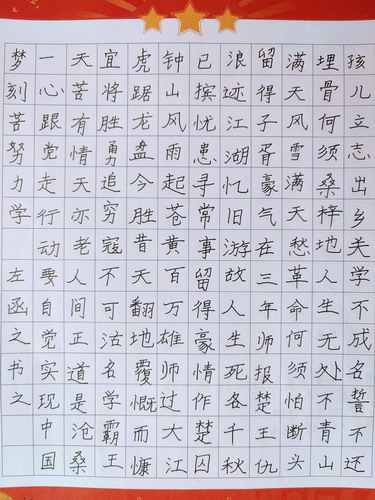 孩儿立志出乡关学不成名誓不还
埋骨何须桑梓地人生无处不青山
满天风雪满天愁革命何须怕断头
留得子胥豪气在三年师报楚王仇
浪迹江湖忆旧游故人生死各千秋
已摈忧患寻常事留得豪情作楚囚
钟山风雨起苍黄百万雄师过大江
虎踞龙盘今胜昔天翻地覆慨而慷
宜将胜勇追穷寇不可沽名学霸王
天苦有情天亦老人间正道是沧桑
一心跟党走行动要自觉实现中国
梦刻苦努力学 左函之书之